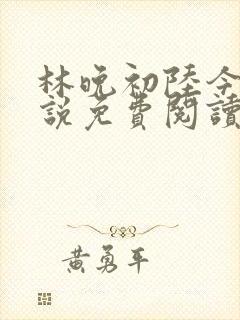 林晚初陸今
說免費閱讀
黃勇平